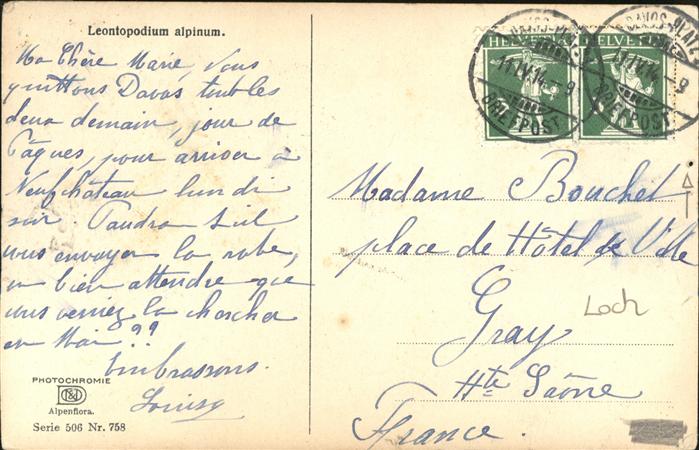 Leontopodium alpinum.
Ma Chère Marie, Nous
quittons Davos tous les
deux demain, jour de
Pâques, pour arriver à
Neufchâteau lundi
soir. Faudra t-il
vous envoyer la robe,
ou bien attendre que
vous veniez la chercher
en Mai??
Embrassons.
Louisy
PHOTOCHROMIE
Alpenflora.
Serie 506 Nr. 758
HELVETIA HELVETIA
DAVOS-PLATZ
11.IV.14.-9
BRIEFPOST
DAVOS-PLATZ
11.IV.14.-9
BRIEFPOST
Madame Bouchet
place de Hôtel de Ville
Gray
Loch
Hte Saône
France.